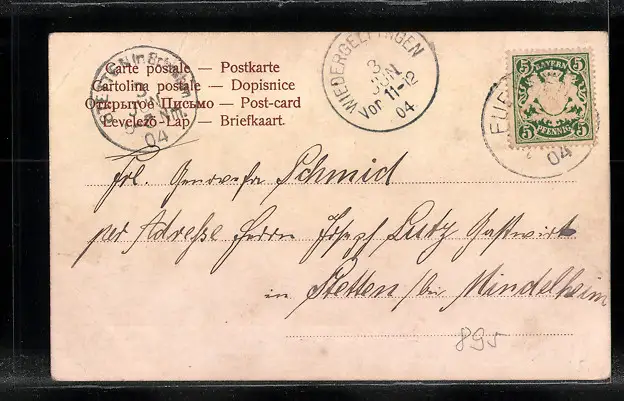 Carte postale — Postkarte
Cartolina postale — Dopisnice
Открытое Письмо — Post-card
Levelező-Lap — Briefkaart.
STETTEN
04
WIEDERGELTINGEN
3
JUN
Vor 11-12
04
5 BAYERN 5
5 PFENNIG 5
04
Frl. Genovefa Schmid
per Adresse Herrn Josef Lutz Gastwirt
in Stetten / bei Mindelheim
895